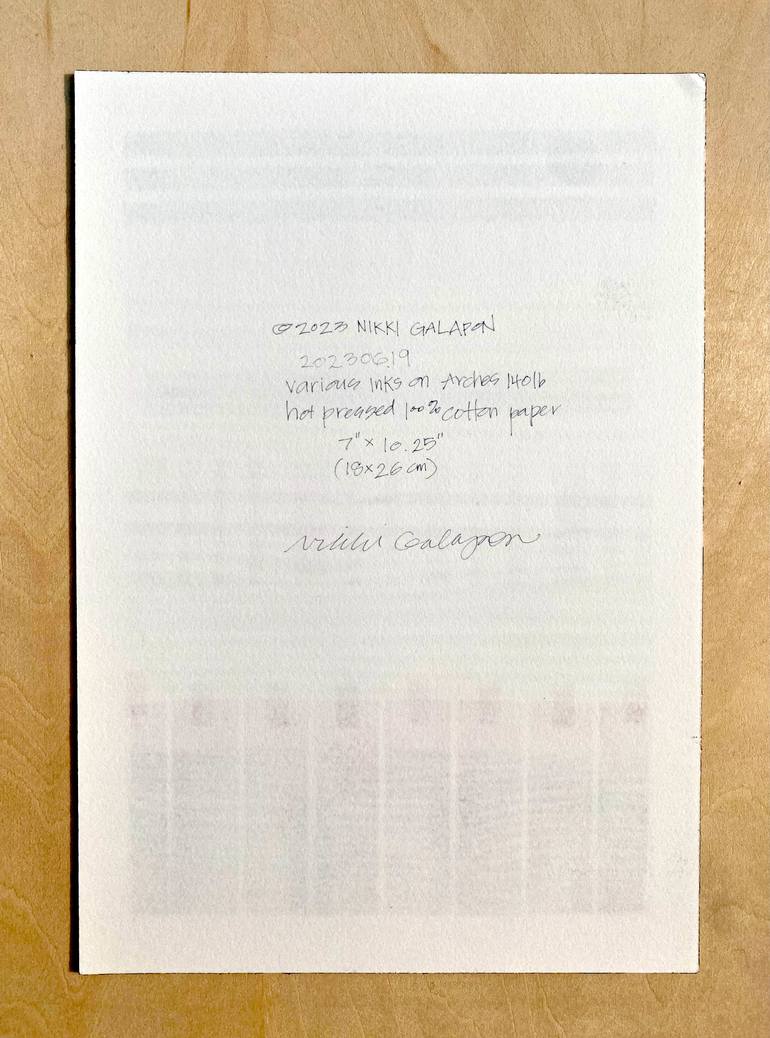 ©2023 NIKKI GALAPON
20230619
various inks on Arches 140lb
hot pressed 100% cotton paper
7" x 10.25"
(18x26 cm)
Nikki Galapon